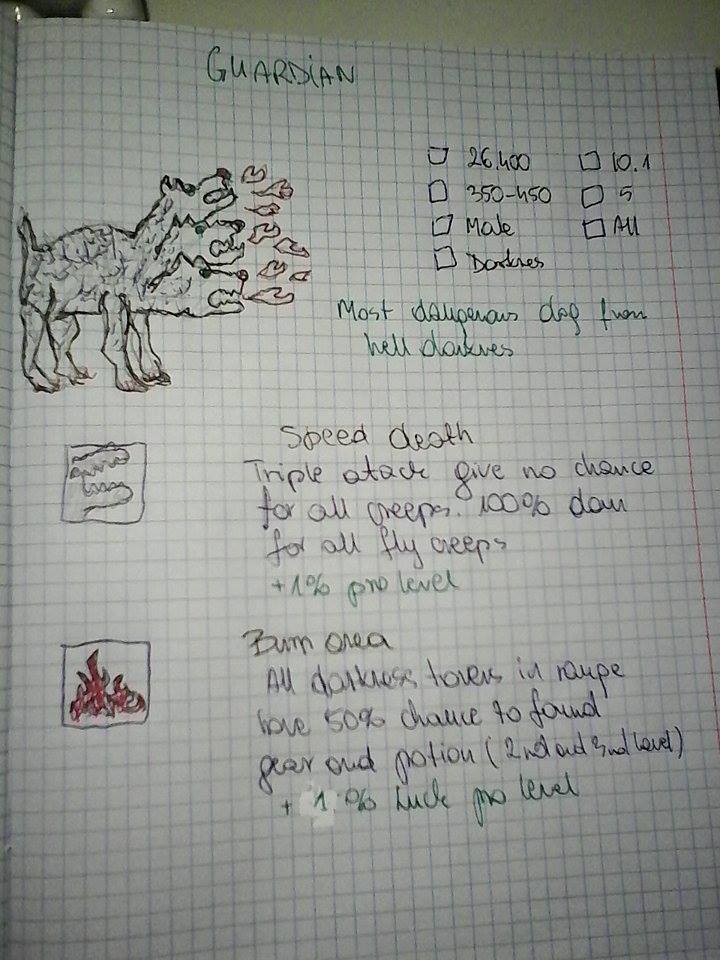 GUARDIAN
26.400
10.1
350-450
5
Male
All
Darknes
Most dangerous dog from
hell darknes
Speed death
Triple atack give no chance
for all creeps. 100% dam
for all fly creeps
+1% pro level
Burn area
All darkness towers in range
have 50% chance to found
gear and potion (2nd and 3nd level)
+ 1 % luck pro level